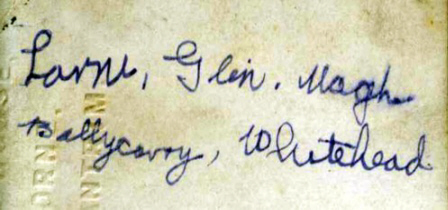 Larne, Glin. Magh
Ballycarry, Whitehead